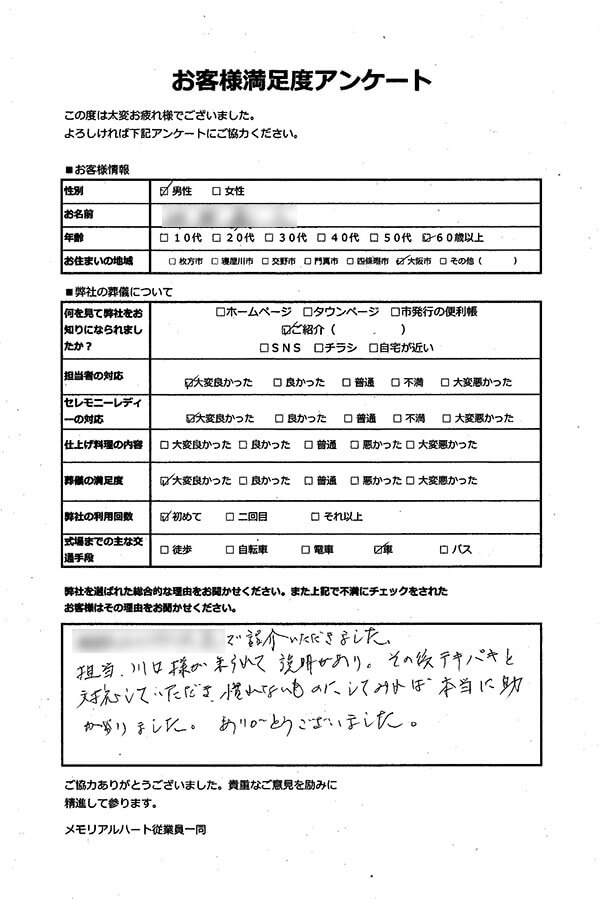 お客様満足度アンケート
この度は大変お疲れ様でございました。
よろしければ下記アンケートにご協力ください。
■お客様情報
性別 ☑男性 □女性
お名前
年齢 □10代 □20代 □30代 □40代 □50代 ☑60歳以上
お住まいの地域 □枚方市 □寝屋川市 □交野市 □門真市 □四條畷市 ☑大阪市 □その他（ ）
■弊社の葬儀について
何を見て弊社をお知りになられましたか？
□ホームページ □タウンページ □市発行の便利帳
☑ご紹介（ ）
□SNS □チラシ □自宅が近い
担当者の対応 ☑大変良かった □良かった □普通 □不満 □大変悪かった
セレモニーレディーの対応 ☑大変良かった □良かった □普通 □不満 □大変悪かった
仕上げ料理の内容 □大変良かった □良かった □普通 □悪かった □大変悪かった
葬儀の満足度 ☑大変良かった □良かった □普通 □悪かった □大変悪かった
弊社の利用回数 ☑初めて □二回目 □それ以上
式場までの主な交通手段 □徒歩 □自転車 □電車 ☑車 □バス
弊社を選ばれた総合的な理由をお聞かせください。また上記で不満にチェックをされた
お客様はその理由をお聞かせください。
で紹介いただきました。
担当、川口様が来られて説明があり。その後テキパキと
対応していただき、慣れないものにしてみれば本当に助
かりました。ありがとうございました。
ご協力ありがとうございました。貴重なご意見を励みに
精進して参ります。
メモリアルハート従業員一同